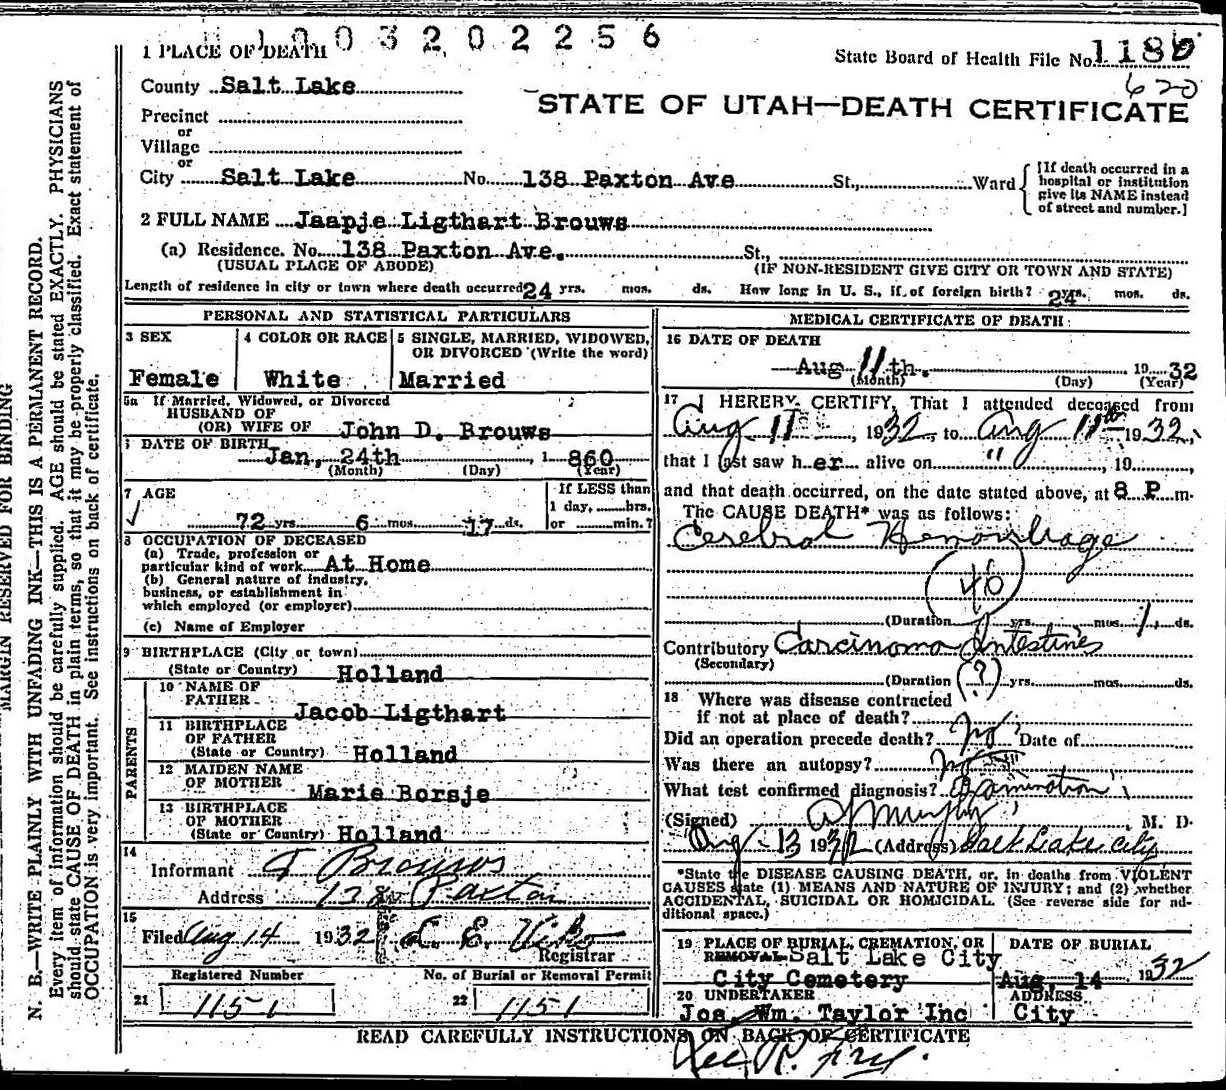 1003202256
1 PLACE OF DEATH
State Board of Health File No. 118
620
County Salt Lake
STATE OF UTAH—DEATH CERTIFICATE
Precinct
or
Village
or
City Salt Lake No. 138 Paxton Ave St., Ward
[If death occurred in a
hospital or institution
give its NAME instead
of street and number.]
2 FULL NAME Jaapje Ligthart Brouws
(a) Residence. No. 138 Paxton Ave. St.,
(USUAL PLACE OF ABODE) (IF NON-RESIDENT GIVE CITY OR TOWN AND STATE)
Length of residence in city or town where death occurred 24 yrs. mos. ds. How long in U. S., if of foreign birth? 24 yrs. mos. ds.
PERSONAL AND STATISTICAL PARTICULARS
3 SEX
Female
4 COLOR OR RACE
White
5 SINGLE, MARRIED, WIDOWED,
OR DIVORCED (Write the word)
Married
5a If Married, Widowed, or Divorced
HUSBAND OF
(OR) WIFE OF John D. Brouws
DATE OF BIRTH
Jan, 24th, 1860
(Month) (Day) (Year)
7 AGE
72 yrs. 6 mos. 17 ds.
If LESS than
1 day, ......hrs.
or ......min.?
8 OCCUPATION OF DECEASED
(a) Trade, profession or
particular kind of work At Home
(b) General nature of industry,
business, or establishment in
which employed (or employer)
(c) Name of Employer
9 BIRTHPLACE (City or town)
(State or Country) Holland
PARENTS
10 NAME OF
FATHER Jacob Ligthart
11 BIRTHPLACE
OF FATHER
(State or Country) Holland
12 MAIDEN NAME
OF MOTHER Marie Borsje
13 BIRTHPLACE
OF MOTHER
(State or Country) Holland
14
Informant Brouws
Address 138 Paxton
15
Filed Aug 14 1932
Registrar
Registered Number
21 1151
No. of Burial or Removal Permit
22 1151
MEDICAL CERTIFICATE OF DEATH
16 DATE OF DEATH
Aug 11th. 1932
(Month) (Day) (Year)
17 I HEREBY CERTIFY, That I attended deceased from
Aug 11, 1932, to Aug 11th 1932,
that I last saw her alive on " , 19 ,
and that death occurred, on the date stated above, at 8 P m.
The CAUSE DEATH* was as follows:
Cerebral Hemorrhage
46
(Duration yrs. mos. 1 ds.
Contributory Carcinoma Intestines
(Secondary)
(Duration (?) yrs. mos. ds.
18 Where was disease contracted
if not at place of death?
Did an operation precede death? no Date of
Was there an autopsy? no
What test confirmed diagnosis? Examination
(Signed) Murphy, M. D.
Aug 13 1932 (Address) Salt Lake City
*State the DISEASE CAUSING DEATH, or, in deaths from VIOLENT
CAUSES state (1) MEANS AND NATURE OF INJURY; and (2) whether
ACCIDENTAL, SUICIDAL OR HOMICIDAL. (See reverse side for ad-
ditional space.)
19 PLACE OF BURIAL, CREMATION, OR
REMOVAL Salt Lake City
City Cemetery
DATE OF BURIAL
Aug, 14 1932
20 UNDERTAKER
Jos. Wm. Taylor Inc
ADDRESS
City
READ CAREFULLY INSTRUCTIONS ON BACK OF CERTIFICATE
MARGIN RESERVED FOR BINDING
N. B.—WRITE PLAINLY WITH UNFADING INK—THIS IS A PERMANENT RECORD.
Every item of information should be carefully supplied. AGE should be stated EXACTLY. PHYSICIANS
should state CAUSE OF DEATH in plain terms, so that it may be properly classified. Exact statement of
OCCUPATION is very important. See instructions on back of certificate.